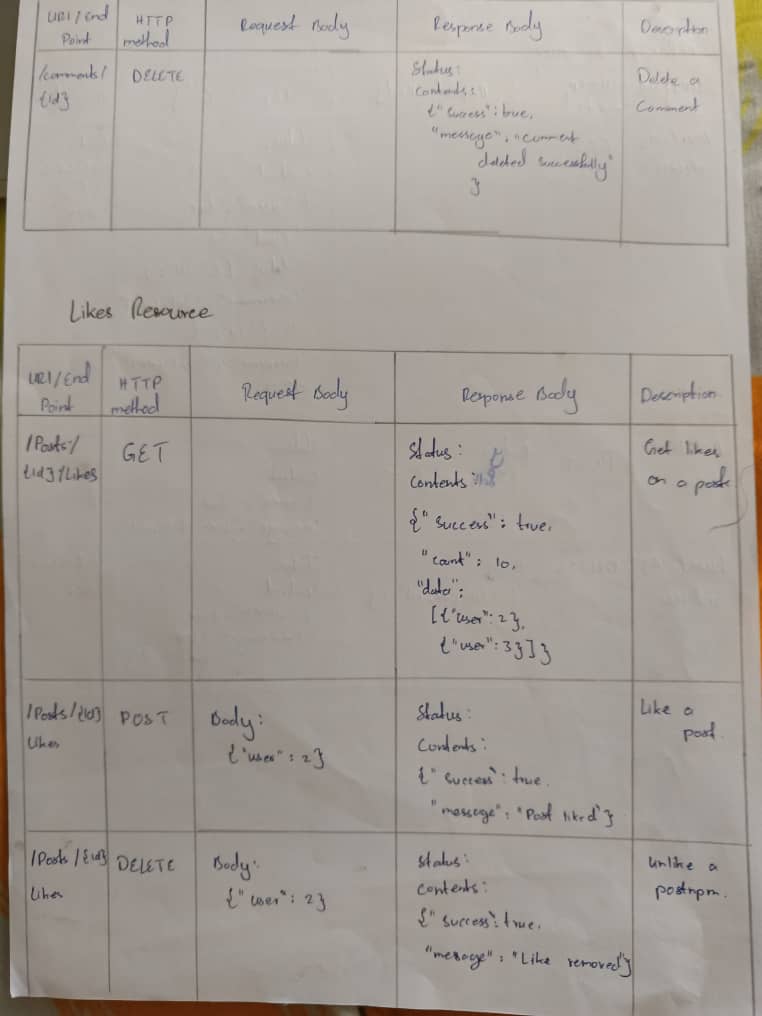 URI/End Point
HTTP method
Request Body
Response Body
Description
/comments/
{id}
DELETE
Status:
Contents:
{"success": true,
"message": "comment
deleted successfully"
}
Delete a
Comment
Likes Resource
URI/End Point
HTTP method
Request Body
Response Body
Description
/Posts/
{id}/Likes
GET
Status:
Contents:
{"success": true,
"count": 10,
"data":
[{"user": 2},
{"user": 3}]}
Get likes
on a post
/Posts/{id}
Likes
POST
Body:
{"user": 2}
Status:
Contents:
{"success": true.
"message": "Post liked"}
Like a
post.
/Posts/{id}
Likes
DELETE
Body:
{"user": 2}
Status:
Contents:
{"success": true,
"message": "Like removed"}
unlike a
postnpm.